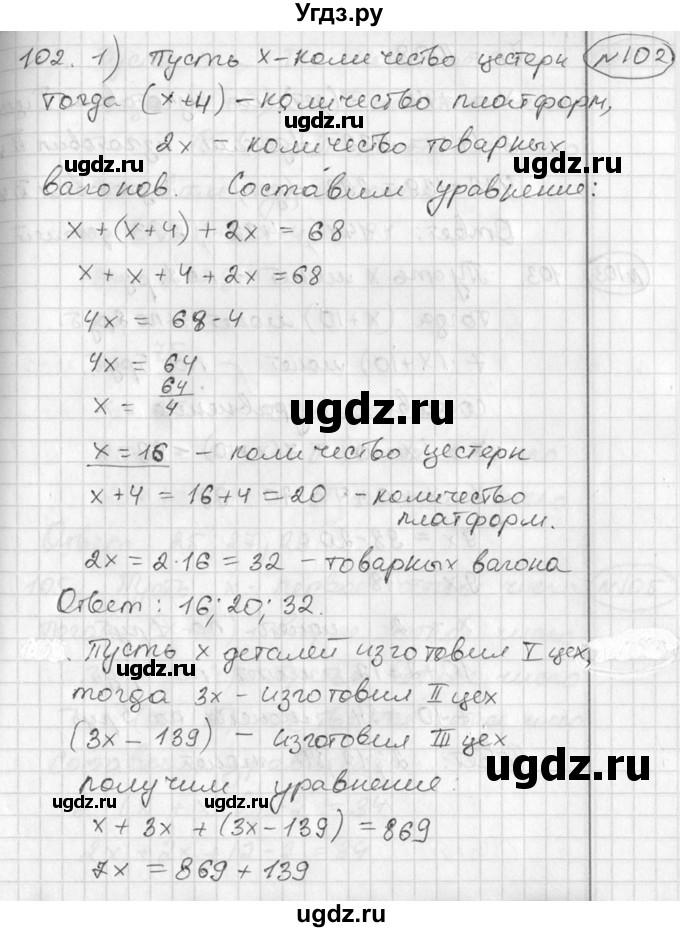 Угдз.ру
102. 1) Пусть x – количество цестерн №102
тогда (x+4) – количество платформ,
2x – количество товарных
вагонов. Составим уравнение:
x + (x+4) + 2x = 68
x + x + 4 + 2x = 68
4x = 68 - 4
4x = 64
x = 64/4
x = 16 – количество цестерн
x+4 = 16+4 = 20 – количество
платформ.
2x = 2·16 = 32 – товарных вагона
Ответ: 16; 20; 32.
Пусть x деталей изготовил I цех,
тогда 3x – изготовил II цех
(3x – 139) – изготовил III цех
получим уравнение:
x + 3x + (3x - 139) = 869
7x = 869 + 139
ugdz.ru